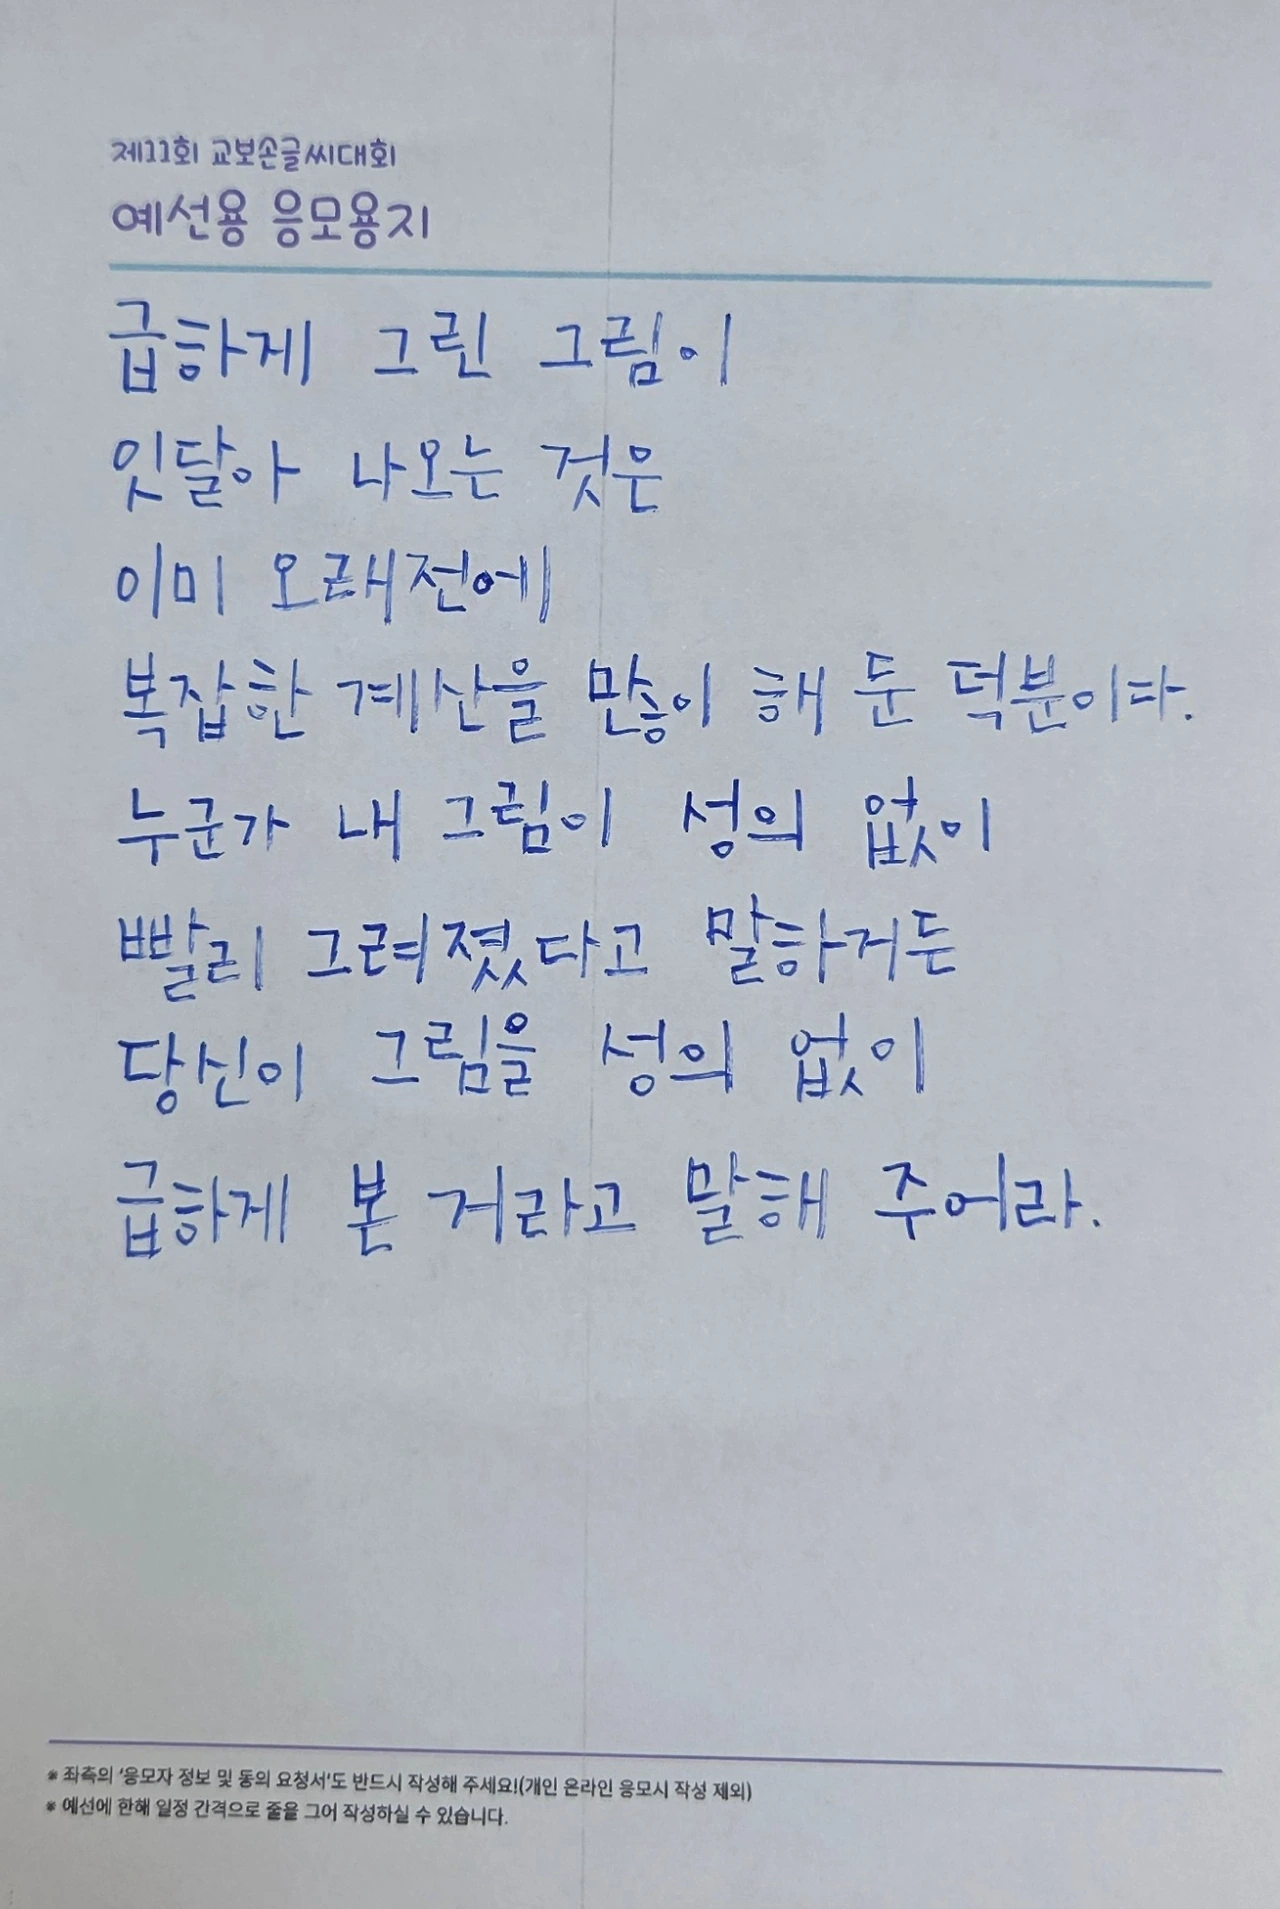 제11회 교보손글씨대회
예선용 응모용지
급하게 그린 그림이
잇달아 나오는 것은
이미 오래전에
복잡한 계산을 많이 해 둔 덕분이다.
누군가 내 그림이 성의 없이
빨리 그려졌다고 말하거든
당신이 그림을 성의 없이
급하게 본 거라고 말해 주어라.
※ 좌측의 '응모자 정보 및 동의 요청서'도 반드시 작성해 주세요!(개인 온라인 응모시 작성 제외)
※ 예선에 한해 일정 간격으로 줄을 그어 작성하실 수 있습니다.